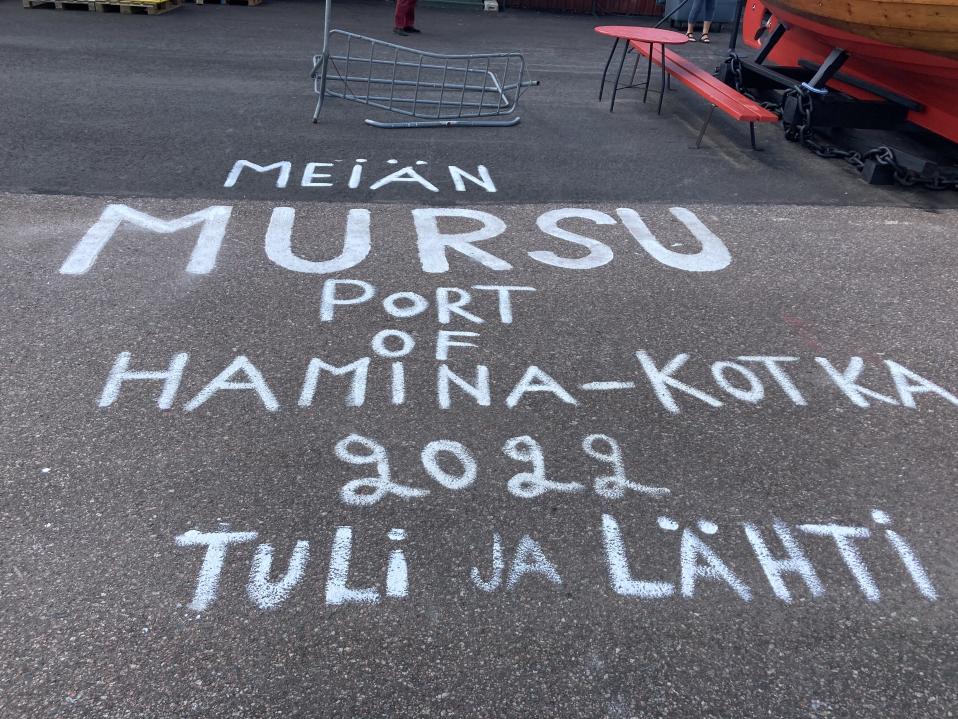 MEiÄN
MURSU
PORT
OF
HAMINA-KOTKA
2022
TULi JA LÄHTi